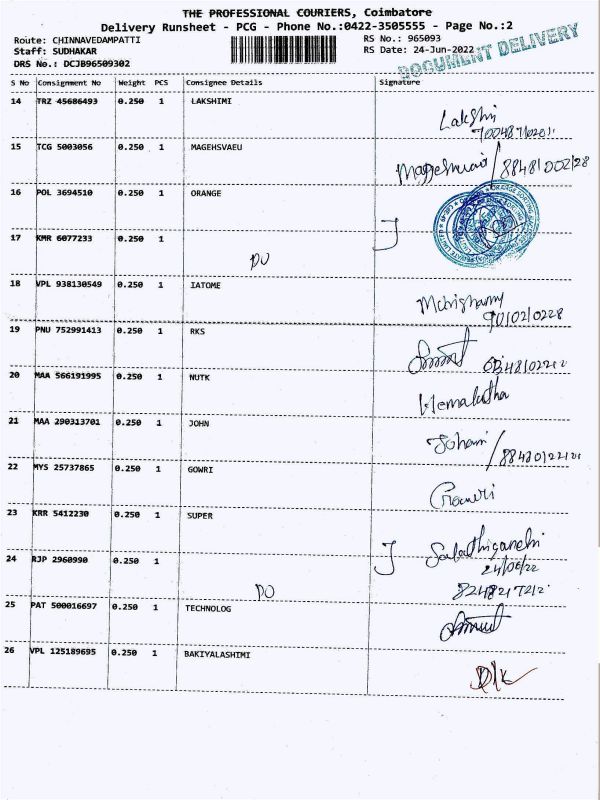 THE PROFESSIONAL COURIERS, Coimbatore
Delivery Runsheet - PCG - Phone No.:0422-3505555 - Page No.:2
Route: CHINNAVEDAMPATTI RS No.: 965093
Staff: SUDHAKAR RS Date: 24-Jun-2022
DRS No.: DCJB96509302
DOCUMENT DELIVERY
S No Consignment No Weight PCS Consignee Details Signature
14 TRZ 45686493 0.250 1 LAKSHIMI
Lakshi
15 TCG 5003056 0.250 1 MAGEHSVAEU
88481002128
16 POL 3694510 0.250 1 ORANGE
17 KMR 6077233 0.250 1
DO
18 VPL 938130549 0.250 1 IATOME
9010210228
19 PNU 752991413 0.250 1 RKS
20 MAA 566191995 0.250 1 NUTK
Hemalatha
21 MAA 290313701 0.250 1 JOHN
22 MYS 25737865 0.250 1 GOWRI
Gowri
23 KRR 5412230 0.250 1 SUPER
24/06/22
24 RJP 2960990 0.250 1
DO 8248217212
25 PAT 500016697 0.250 1 TECHNOLOG
26 VPL 125189695 0.250 1 BAKIYALASHIMI